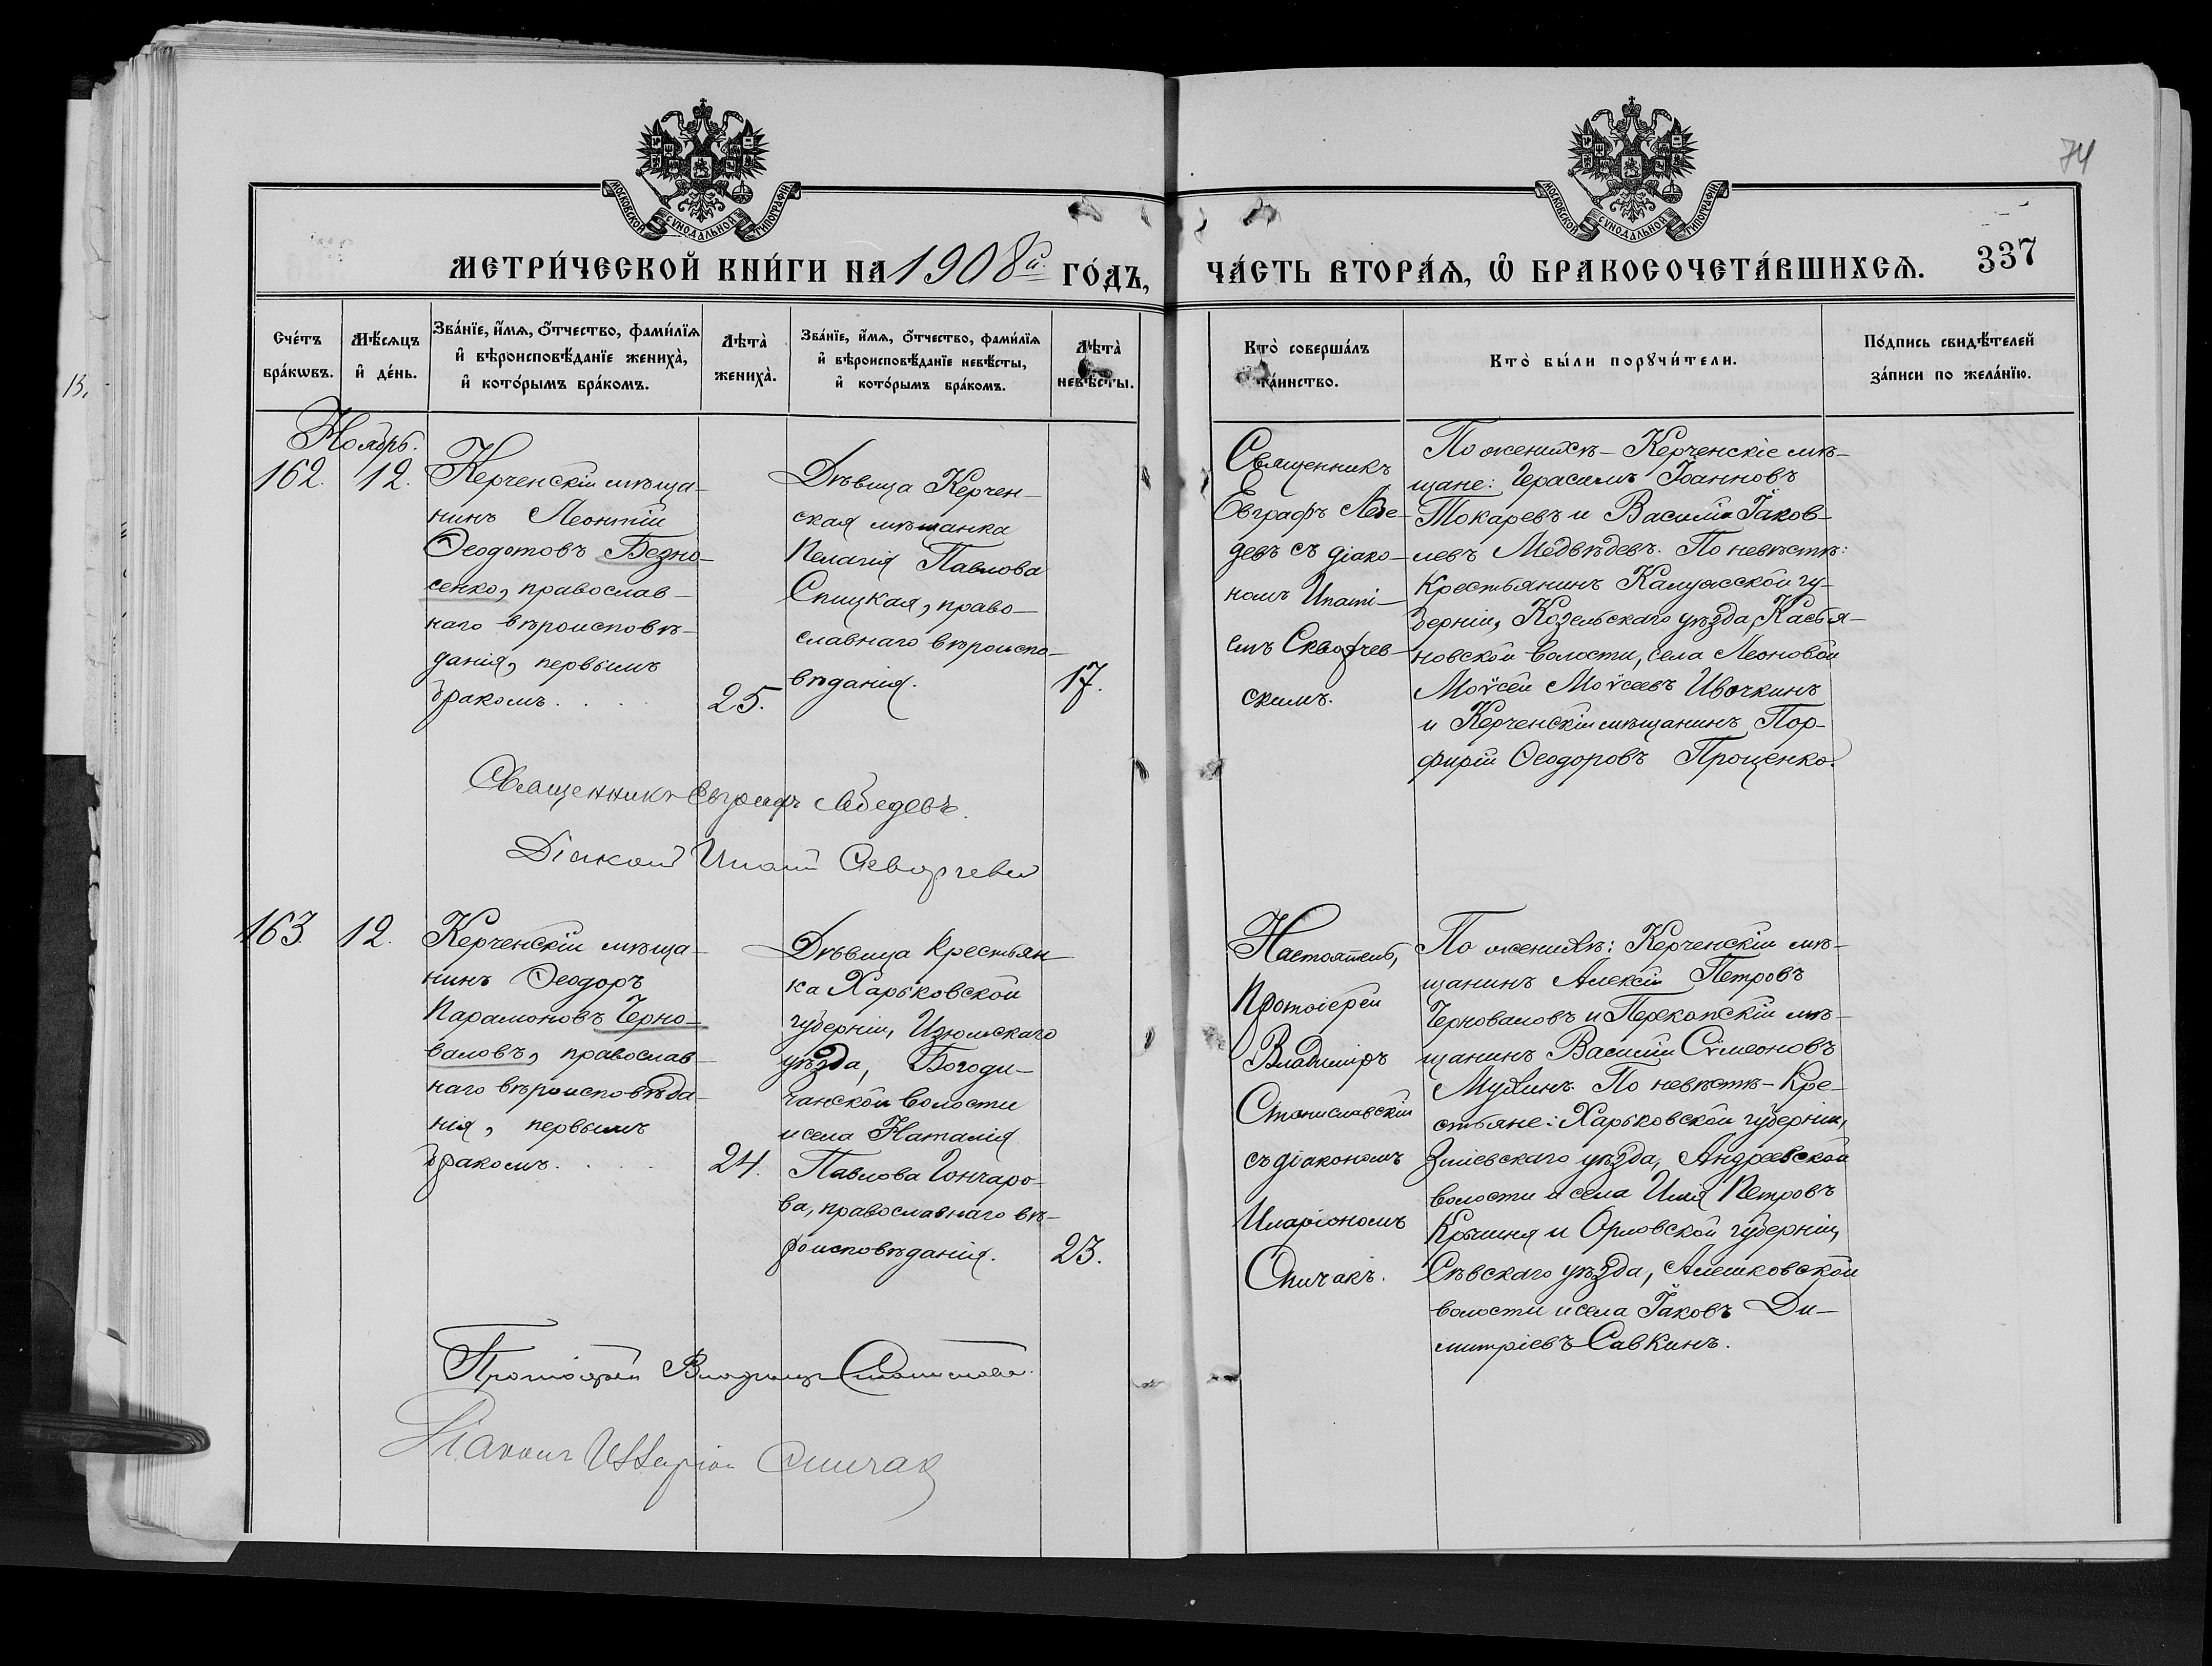 74
МОСКОВСКОЙ СѴНОДАЛЬНОЙ ТИПОГРАФІИ
МОСКОВСКОЙ СѴНОДАЛЬНОЙ ТИПОГРАФІИ
МЕТРИ́ЧЕСКОЙ КНИ́ГИ НА 1908й ГО́ДЪ,
ЧА́СТЬ ВТОРА́Ѧ, Ѽ БРАКОСОЧЕТА́ВШИХСѦ.
337
Сче́тъ
бра́кѡвъ.
Мѣ́сѧцъ
и҆ де́нь.
Зва́нїе, и҆́мѧ, ѻ҆́тчество, фами́лїѧ
и҆ вѣроисповѣ́данїе жениха̀,
и҆ кото́рымъ бра́комъ.
Лѣта̀
жениха̀.
Зва́нїе, и҆́мѧ, ѻ҆́тчество, фами́лїѧ
и҆ вѣроисповѣ́данїе невѣ́сты,
и҆ кото́рымъ бра́комъ.
Лѣта̀
невѣ́сты.
Кто̀ соверша́лъ
та́инство.
Кто̀ бы́ли порꙋчи́тели.
По́дпись свидѣ́телей
за́писи по жела́нїю.
13.
Ноябрь.
162.
12.
Керченскій мѣща-
нинъ Леонтій
Ѳеодотовъ Безно-
сенко, православ-
наго вѣроисповѣ-
данія, первымъ
бракомъ. . . .
25.
Дѣвица Керчен-
ская мѣщанка
Пелагія Павлова
Спицкая, право-
славнаго вѣроиспо-
вѣданія.
17.
Священникъ
Евграфъ Лебе-
девъ съ діако-
номъ Ипаті-
емъ Скворчев-
скимъ.
По женихѣ - Керченскіе мѣ-
щане: Герасимъ Іоанновъ
Токаревъ и Василій Іаков-
левъ Медвѣдевъ. По невѣстѣ:
Крестьянинъ Калужской гу-
берніи, Козельскаго уѣзда, Касья-
новской волости, села Леоновой
Моѵсей Моѵсеевъ Ивочкинъ
и Керченскій мѣщанинъ Пор-
фирій Ѳеодоровъ Проценко.
Священникъ Евграфъ Лебедевъ.
Діаконъ Ипатій Скворчевс
163.
12.
Керченскій мѣща-
нинъ Ѳеодоръ
Парамоновъ Черно-
валовъ, православ-
наго вѣроисповѣда-
нія, первымъ
бракомъ. . . .
24.
Дѣвица крестьян-
ка Харьковской
губерніи, Изюмскаго
уѣзда, Богоди-
чанской волости
и села Наталія
Павлова Гончаро-
ва, православнаго вѣ-
роисповѣданія.
23.
Настоятель,
Протоіерей
Владиміръ
Станиславскій
съ діакономъ
Иларіономъ
Спичакъ.
По женихѣ: Керченскій мѣ-
щанинъ Алексій Петровъ
Черноваловъ и Перекопскій мѣ-
щанинъ Василій Сѵмеоновъ
Мухинъ. По невѣстѣ - Кре-
стьяне: Харьковской губерніи,
Зміевскаго уѣзда, Андреевской
волости и села Илія Петровъ
и Орловской губерніи,
Сѣвскаго уѣзда, Алешковской
волости и села Іаковъ Ди-
митріевъ Савкинъ.
Протоіерей Владиміръ Станиславс
Діаконъ Иларіон Спичак